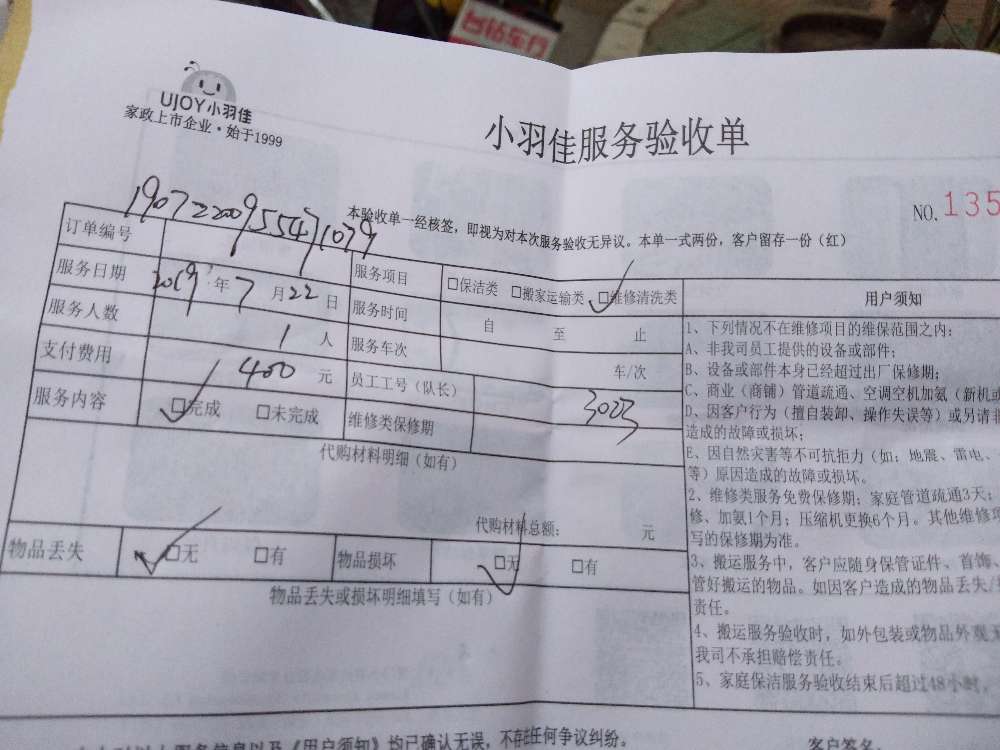 台钻车行
UJOY小羽佳
家政上市企业·始于1999
小羽佳服务验收单
NO.135
本验收单一经核签，即视为对本次服务验收无异议。本单一式两份，客户留存一份（红）
订单编号 19072200955471079
服务日期 2019年7月22日 服务项目 □保洁类 □搬家运输类 □维修清洗类
服务人数 1人 服务时间 自 至 止
支付费用 1400元 服务车次 车/次
服务内容 □完成 □未完成 员工工号（队长） 3023
维修类保修期
代购材料明细（如有）
代购材料总额： 元
物品丢失 □无 □有 物品损坏 □无 □有
物品丢失或损坏明细填写（如有）
用户须知
1、下列情况不在维修项目的维保范围之内：
A、非我司员工提供的设备或部件；
B、设备或部件本身已经超过出厂保修期；
C、商业（商铺）管道疏通、空调空机加氨（新机或
D、因客户行为（擅自装卸、操作失误等）或另请
造成的故障或损坏；
E、因自然灾害等不可抗拒力（如：地震、雷电、
等）原因造成的故障或损坏。
2、维修类服务免费保修期：家庭管道疏通3天；
修、加氨1个月；压缩机更换6个月。其他维修项
写的保修期为准。
3、搬运服务中，客户应随身保管证件、首饰、
管好搬运的物品。如因客户造成的物品丢失/
责任。
4、搬运服务验收时，如外包装或物品外观
我司不承担赔偿责任。
5、家庭保洁服务验收结束后超过48小时，
以上服务信息以及《用户须知》均已确认无误，不存在任何争议纠纷。
客户签名